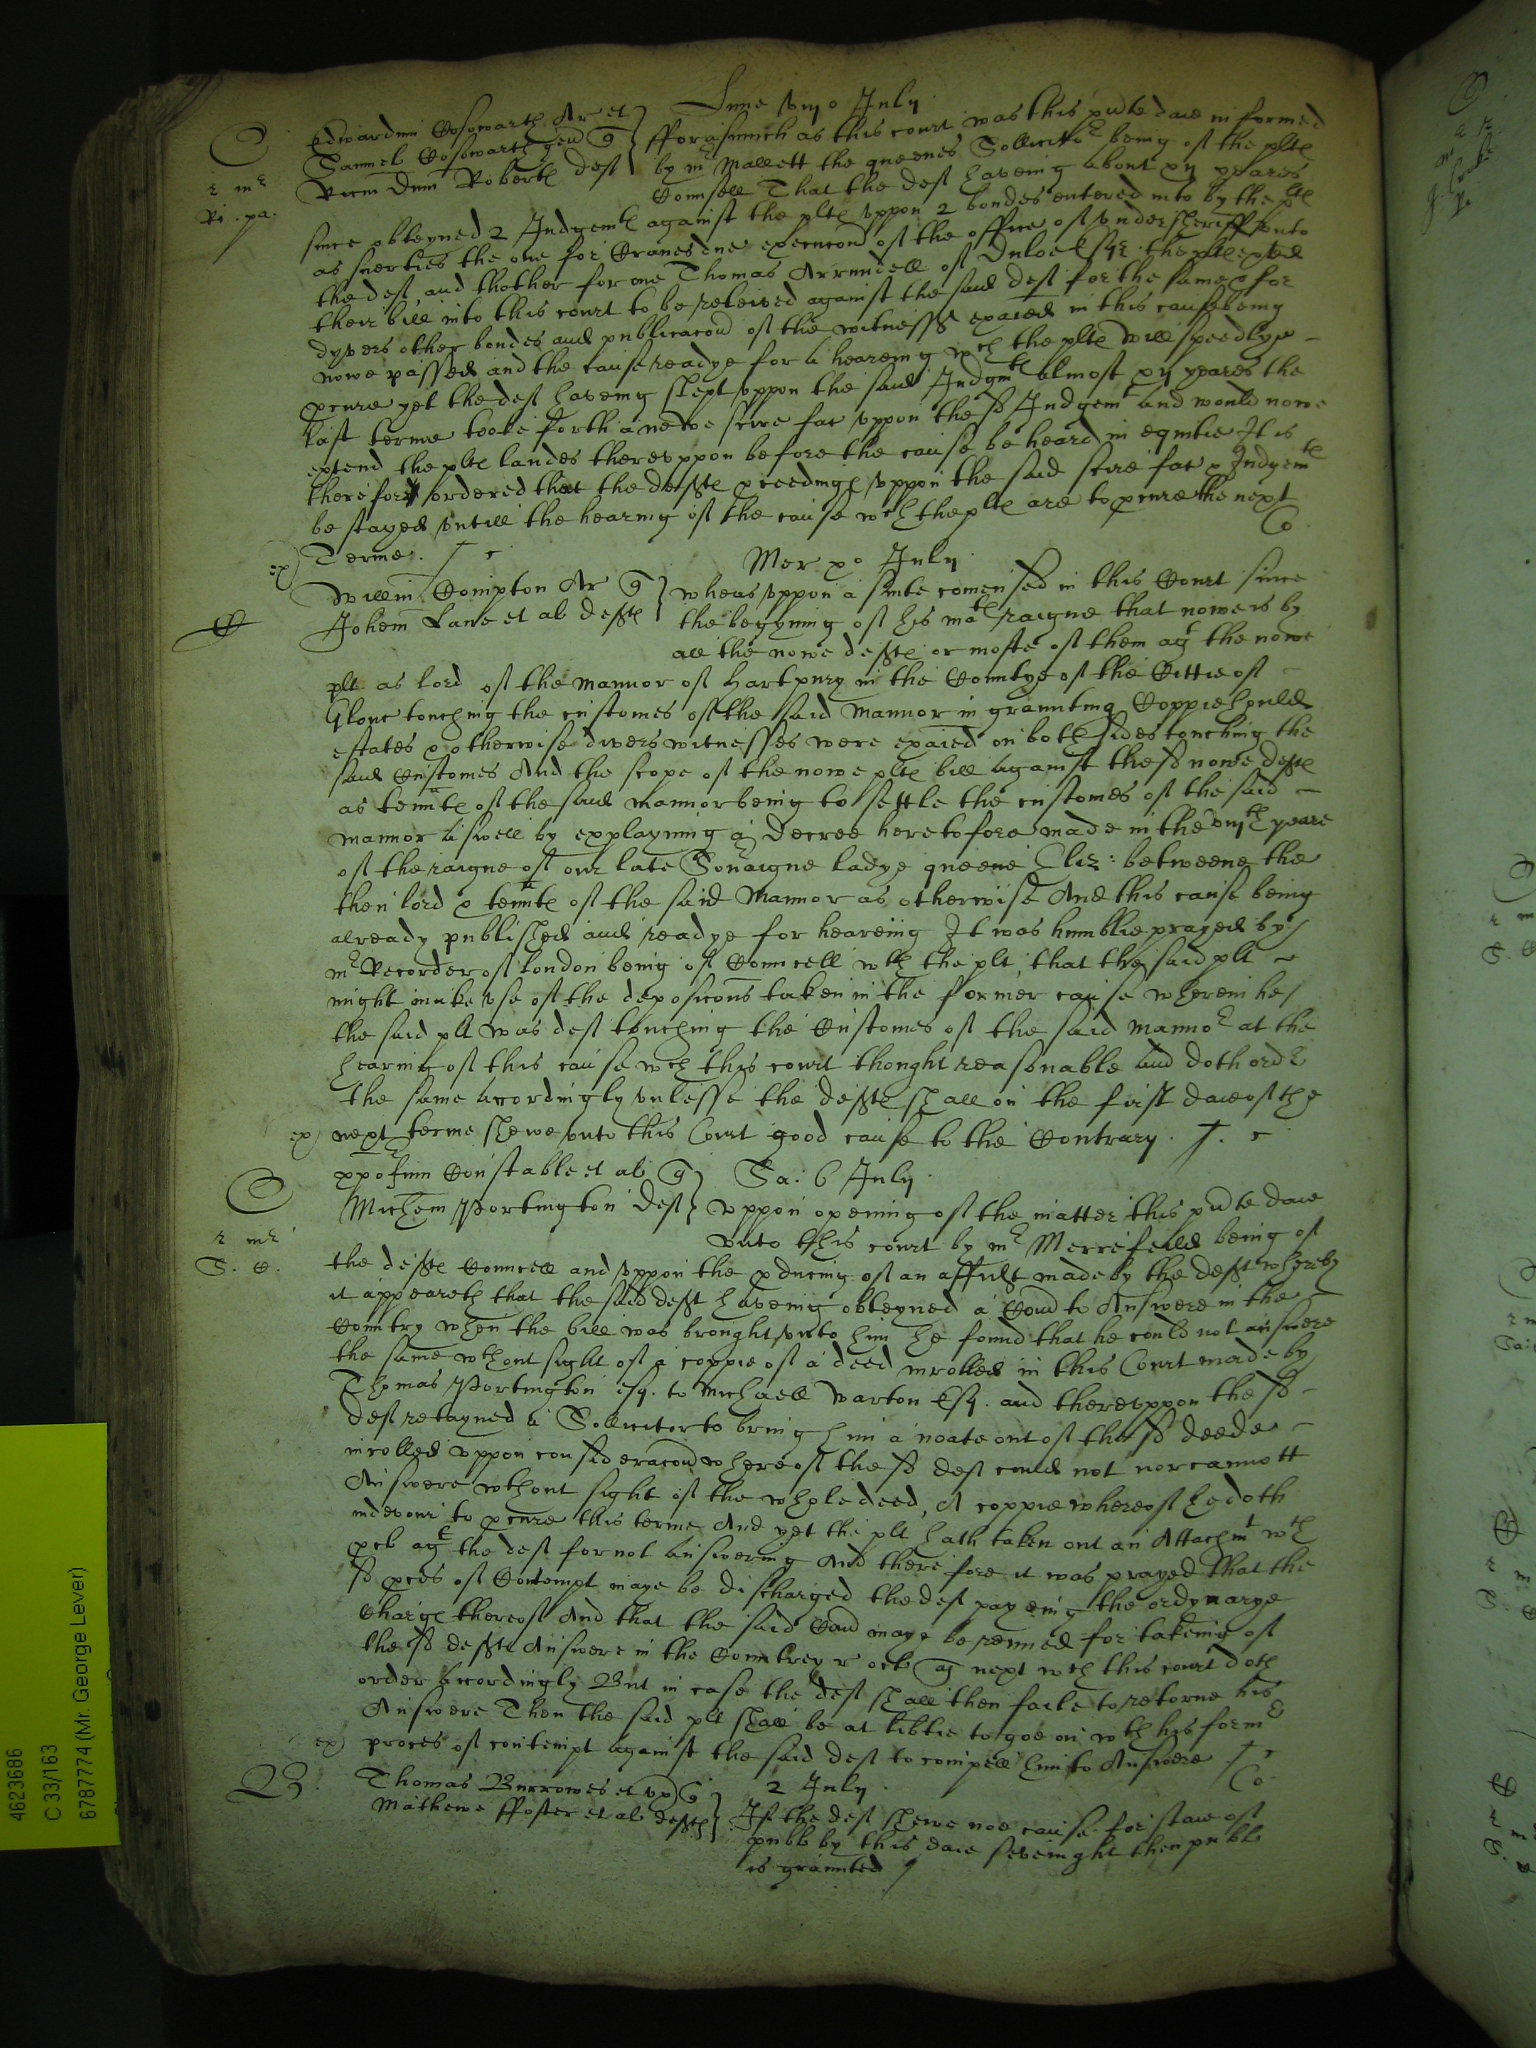 Lune viijo July
Edwardum Cosowarth Ar et
Samuel Cosowarth gen q
Ricm Dnm Roberts def
fforasmuch as this court was this pnte daie informed
by mr Mallett the queenes Sollicitor being of the pltes
Counsell That the def haveing about xij yeares
C
r mr
Ri. pa.
since obteyned 2 Judgemts against the pltes vppon 2 bondes entered into by the plts
as suerties the one for due execucon of the office of vndersheriff vnto
the def, and thother for one Thomas Arrundell of Esqr the plts
their bill into this court to be releived against the said def for the same & for
dyvers other bondes and publicacon of the witnesses exaied in this cause being
nowe passed and the cause readye for a heareing wch the pltes will speedlye
pcure yet the def haveing slept vppon the said Judgmts almost xij yeares the
last terme tooke forth a newe scire fac vppon the sd Judgemt and would nowe
extend the pltes landes therevppon before the cause be heard in equitie It is
therefore ordered that the deftes pceedinges vppon the said scire fac & Judgemts
be stayed vntill the hearing of the cause wch the pltes are to pcure the next
Terme.
Co
ex)
Mer xo July
Willm Compton Ar q
Johem Lane et al deftes
wheras vppon a suite comensed in this Court since
the begynning of his mats raigne that nowe is by
all the nowe deftes or moste of them agt the nowe
C
plt as lord of the mannor of Hartpury in the Countye of the Cittie of
Glouc touching the customes of the said mannor in graunting Coppiehould
estates & otherwise divers witnesses were exaied on both sides touching the
said Customes And the scope of the nowe pltes bill against the sd nowe deftes
as tennts of the said mannor being to settle the customes of the said
mannor aswell by explayning a Decree heretofore made in the yeare
of the raigne of our late Soveraigne ladye queene Eliz: betweene the
then lord & tennts of the said Mannor as otherwise And this cause being
already published and readye for heareing It was humblie prayed by
mr Recorder of London being of Councell wth the plt, that the said plt
might make vse of the deposicons taken in the former cause wherein he
the said plt was def touching the Customes of the said mannor at the
hearing of this cause wch this court thought reasonable and doth order
the same accordingly vnlesse the deftes shall on the first daie of the
ex) next terme shewe vnto this Court good cause to the Contrary.
xpoferum Constable et al q
Michem Portington def
Sa: 6 July
Vppon opening of the matter this pnte daie
vnto this court by mr Merrefeild being of
C
r mr
S. C.
the deftes Councell and vppon the pducing of an affidt made by the deft whereby
it appeareth that the said deft haveing obteyned a Comd to Answere in the
Country when the bill was brought vnto him he found that he could not answere
the same wthout sight of a coppie of a deed inrolled in this Court made by
Thomas Portington esq. to Michaell Warton Esq. and therevppon the sd
def retayned a Sollicitor to bring him a noate out of the sd deede
inrolled vppon consideracon whereof the sd def could not nor cannott
Answere wthout sight of the whole deed, A coppie whereof he doth
indevour to pcure this terme And yet the plt hath taken out an Attachmt wth
pcl agt the def for not answering And therefore it was prayed that the
sd pces of Contempt maye be discharged the def payeing the ordynarye
Charges thereof And that the said Comd maye be renued for takeing of
the sd deftes Answere in the Countrey r next wch this court doth
order accordingly But in case the def shall then faile to retorne his
Answere Then the said plt shall be at libtie to goe on wth his former
ex) proces of contempt against the said def to compell him to Answere
Co
B.
Thomas Burrowes et vx q
Mathewe ffoster et al deftes
2 July.
If the def shewe noe cause for staie of
publ by this daie sevenight then publ
is graunted
4623686
C 33/163
6787774 (Mr. George Lever)